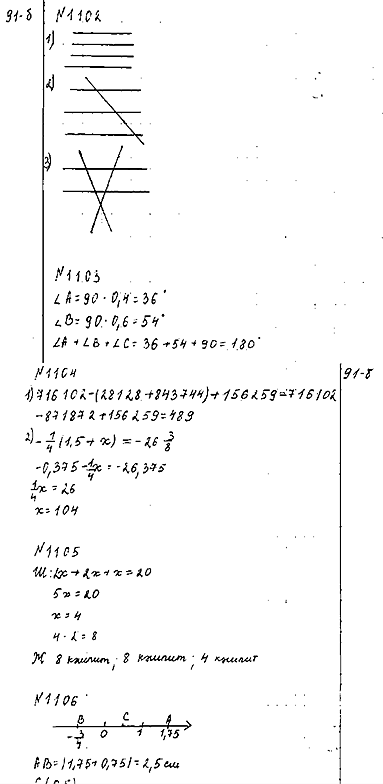 91-б
№1102
1)
2)
3)
№1103
∠A = 90 · 0,4 = 36°
∠B = 90 · 0,6 = 54°
∠A + ∠B + ∠C = 36 + 54 + 90 = 180°
№1104
91-б
1) 716 102 - (28128 + 843744) + 156259 = 716102
- 871872 + 156259 = 489
2) - 1/4 (1,5 + x) = -26 3/8
-0,375 - 1/4 x = -26,375
1/4 x = 26
x = 104
№1105
Ш: 2x + 2x + x = 20
5x = 20
x = 4
4 · 2 = 8
Ж 8 кмпит; 8 кмпит; 4 кмпит
№1106
B C A
- 3/4 0 1 1,75
AB = |1,75 + 0,75| = 2,5 см